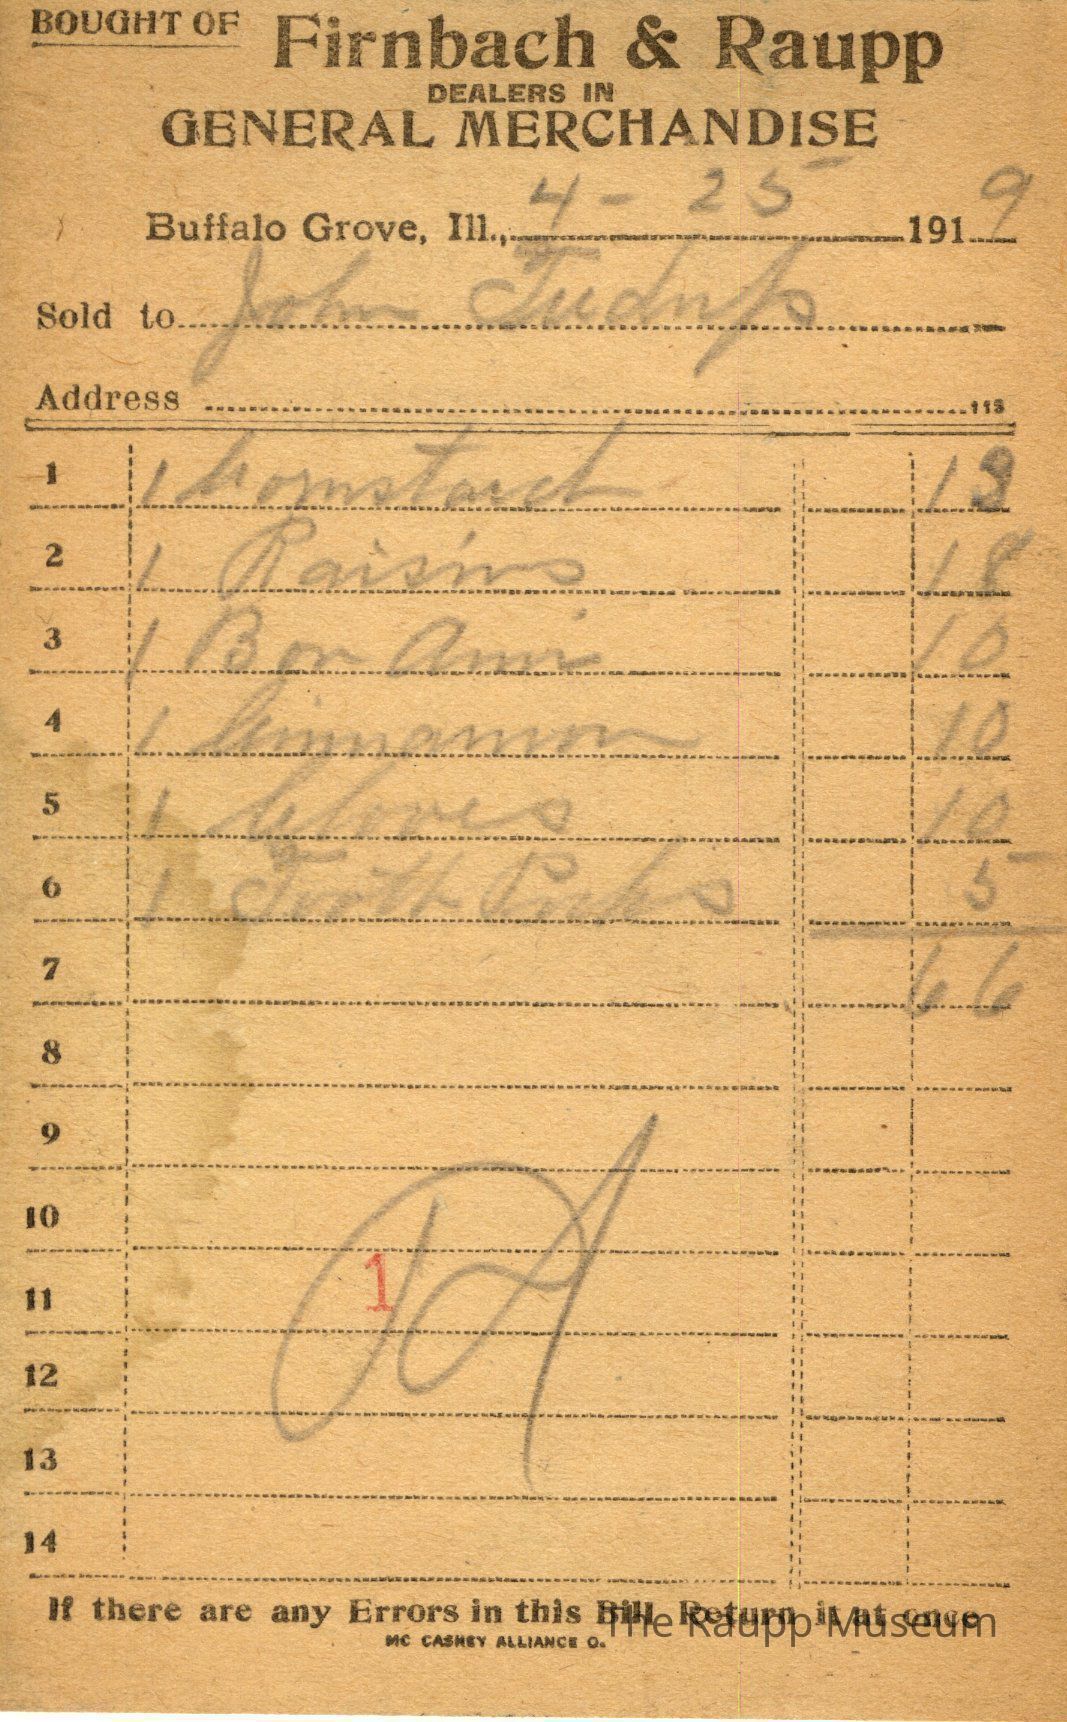 BOUGHT OF Firnbach & Raupp
DEALERS IN
GENERAL MERCHANDISE
Buffalo Grove, Ill., 4 - 25 1919
Sold to John
Address 115
1 1 Cornstarch 13
2 1 Raisins 18
3 1 Bon Ami 10
4 1 Cinnamon 10
5 1 Cloves 10
6 1 Tooth Picks 5
7 66
8
9
10
11 1
12
13
14
If there are any Errors in this Bill Return it at once
The Raupp Museum
MC CASKEY ALLIANCE O.